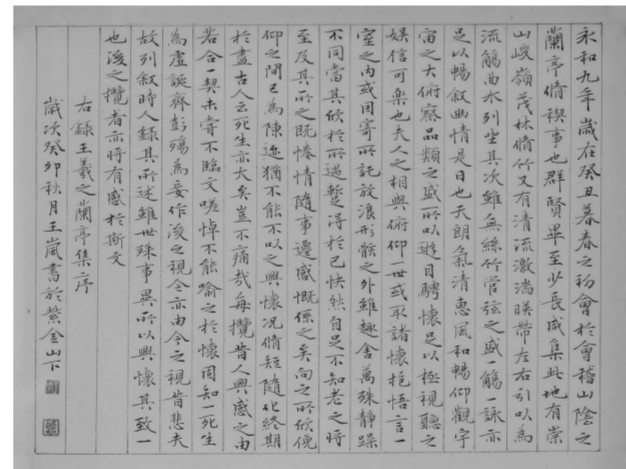 永和九年歲在癸丑暮春之初會於會稽山陰之
蘭亭脩稧事也群賢畢至少長咸集此地有崇
山峻嶺茂林脩竹又有清流激湍暎帶左右引以為
流觴曲水列坐其次雖無絲竹管弦之盛一觴一詠亦
足以暢叙幽情是日也天朗氣清惠風和暢仰觀宇
宙之大俯察品類之盛所以遊目騁懷足以極視聽之
娛信可樂也夫人之相與俯仰一世或取諸懷抱悟言一
室之內或因寄所託放浪形骸之外雖趣舍萬殊靜躁
不同當其欣於所遇暫得於己快然自足不知老之將
至及其所之既惓情隨事遷感慨係之矣向之所欣俛
仰之間已為陳迹猶不能不以之興懷況脩短隨化終期
於盡古人云死生亦大矣豈不痛哉每攬昔人興感之由
若合一契未嘗不臨文嗟悼不能喻之於懷固知一死生
為虛誕齊彭殤為妄作後之視今亦由今之視昔悲夫
故列叙時人錄其所述雖世殊事異所以興懷其致一
也後之攬者亦將有感於斯文
右錄王羲之蘭亭集序
歲次癸卯秋月王嵐書於紫金山下